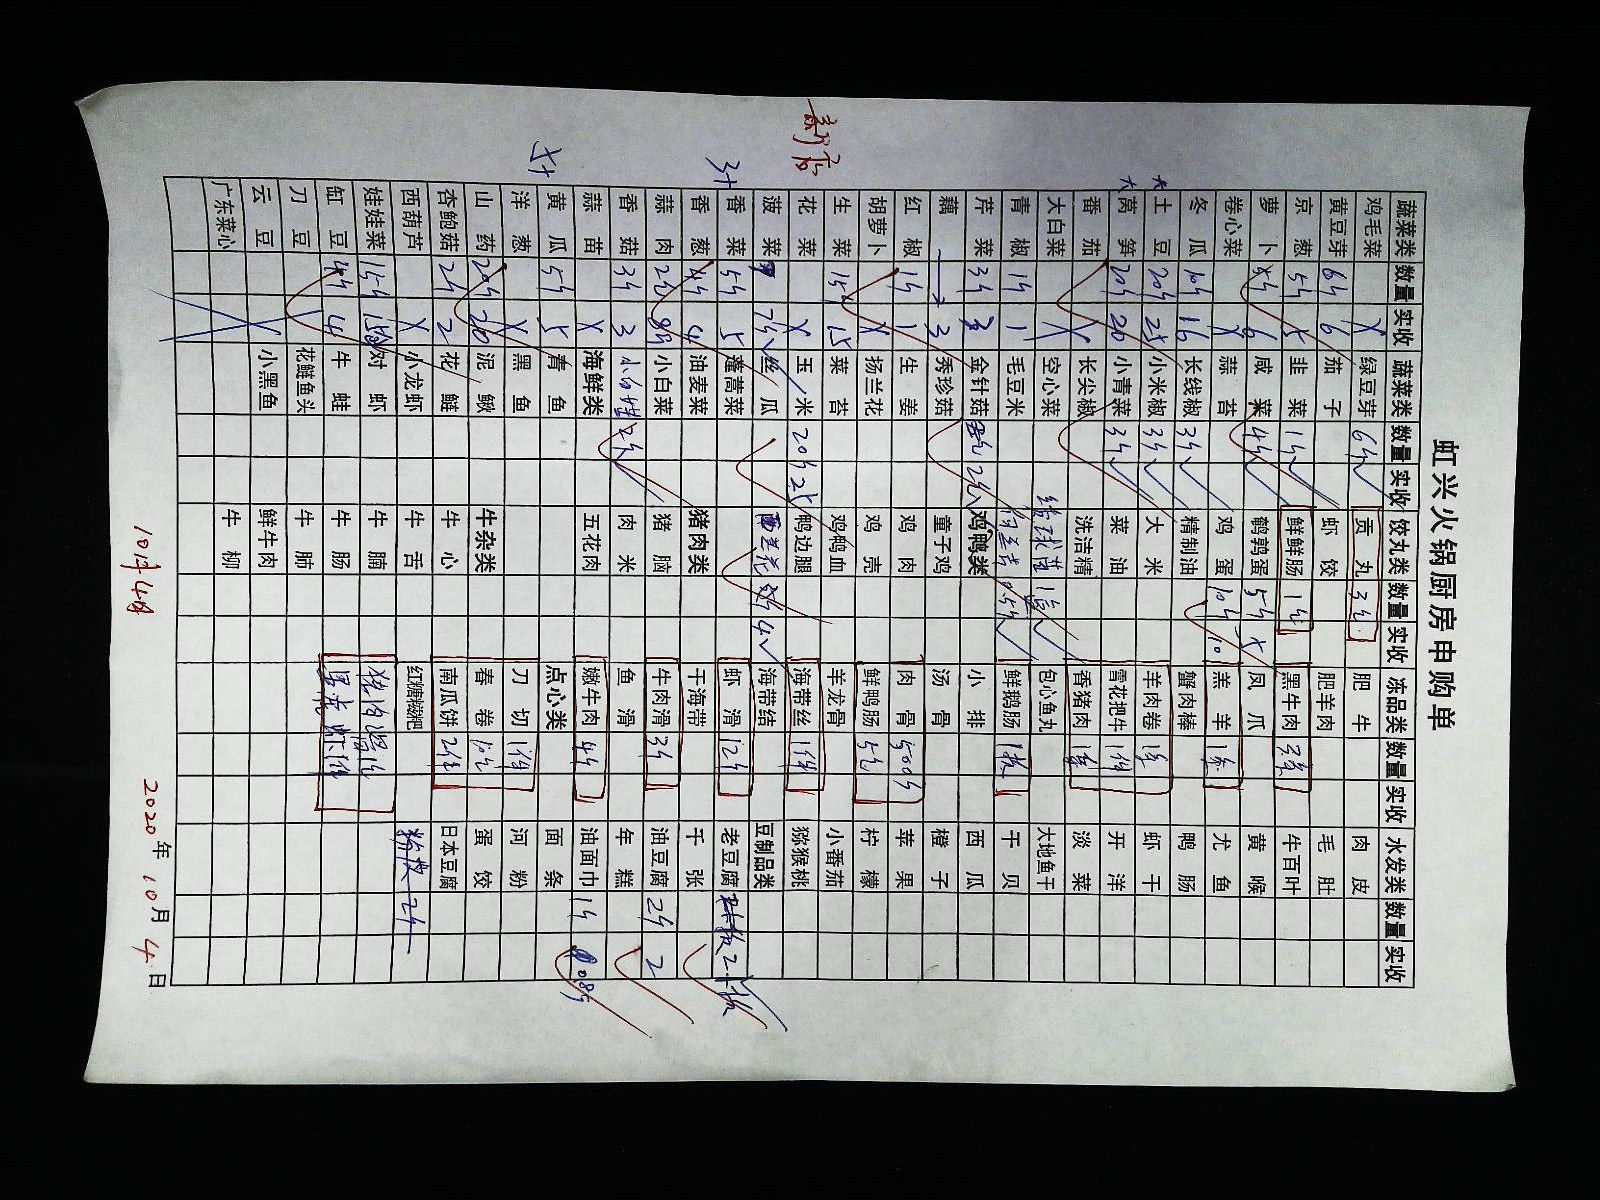 虹兴火锅厨房申购单
蔬菜类 数量 实收 蔬菜类 数量 实收 饺丸类 数量 实收 冻品类 数量 实收 水发类 数量 实收
鸡毛菜 X 绿豆芽 6斤 贡丸 3包 肥牛 肉皮
黄豆芽 6斤 6 茄子 虾饺 肥羊肉 毛肚
京葱 5斤 5 韭菜 1斤 鲜鲜肠 1包 黑牛肉 3条 牛百叶
萝卜 5斤 6 咸菜 4斤 鹌鹑蛋 5斤 X 凤爪 黄喉
卷心菜 X 蒜苔 鸡蛋 10斤 10 羔羊 1条 尤鱼
冬瓜 10斤 16 长线椒 3斤 精制油 蟹肉棒 鸭肠
土豆 20斤 25 小米椒 3斤 大米 羊肉卷 虾干
莴笋 20斤 20 小青菜 3斤 菜油 雪花把牛 1件 开洋
番茄 长尖椒 洗洁精 香猪肉 淡菜
大白菜 X 空心菜 包心鱼丸 大地鱼干
青椒 1斤 1 毛豆米 鲜鹅肠 1板 干贝
芹菜 3斤 3 金针菇 2包 鸡鸭类 小排 西瓜
藕 3 秀珍菇 童子鸡 汤骨 橙子
红椒 1斤 1 生姜 鸡肉 肉骨 苹果
胡萝卜 X 扬兰花 鸡壳 鲜鸭肠 5包 柠檬
生菜 15斤 15 菜苔 鸡鸭血 羊龙骨 小番茄
花菜 X 玉米 20斤 25 鸭边腿 海带丝 1件 猕猴桃
菠菜 7斤 丝瓜 西兰花 4 海带结 豆制品类
香菜 5斤 5 蓬蒿菜 虾滑 12斤 老豆腐 2板
香葱 4斤 4 油麦菜 猪肉类 干海带 千张
蒜肉 2斤 小白菜 猪脑 牛肉滑 3斤 油豆腐 2斤 2
香菇 3斤 3 肉米 鱼滑 年糕
蒜苗 X 海鲜类 五花肉 嫩牛肉 4斤 油面巾 1斤 0.85
黄瓜 5斤 5 青鱼 点心类 面条
洋葱 X 黑鱼 刀切 1件 河粉
山药 20斤 20 泥鳅 牛杂类 春卷 10包 蛋饺
杏鲍菇 2斤 2 花鲢 牛心 南瓜饼 2包 日本豆腐
西葫芦 X 小龙虾 牛舌 红糖糍粑 粉皮 2斤
娃娃菜 15斤 对虾 牛腩
缸豆 4斤 4 牛蛙 牛肠
刀豆 花鲢鱼头 牛肺
云豆 小黑鱼 鲜牛肉
广东菜心 牛柳
新店
10月4日
2020年10月4日